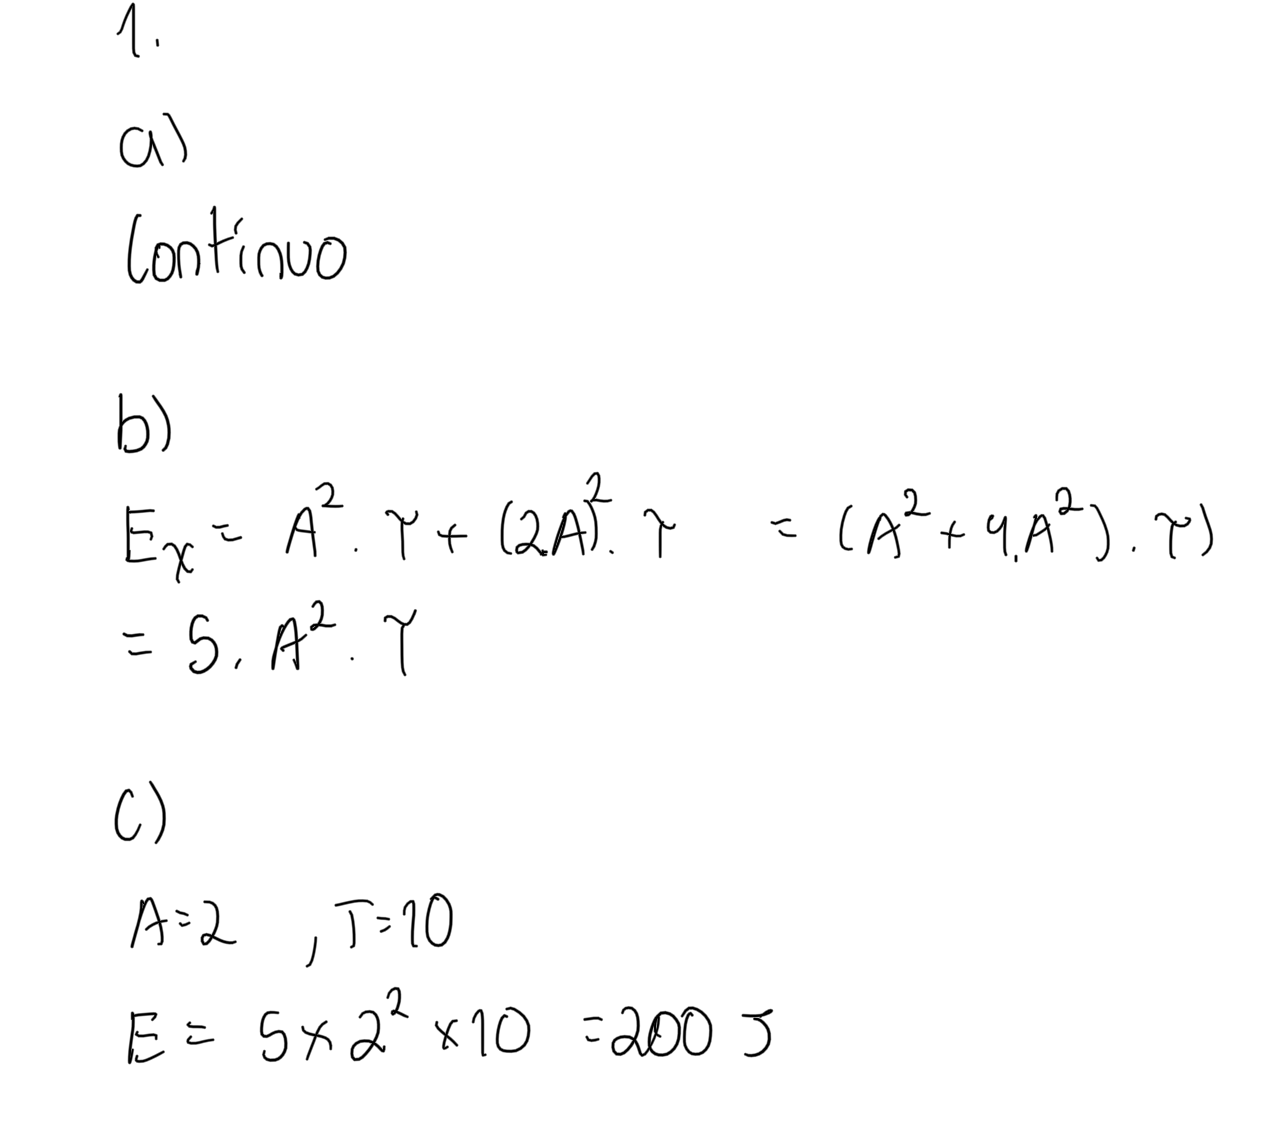 1.
a)
Contínuo
b)
Eₓ = A² . τ + (2A)² . τ = (A² + 4.A²) . τ)
= 5 . A² . τ
c)
A=2 , T=10
E = 5 x 2² x 10 = 200 J